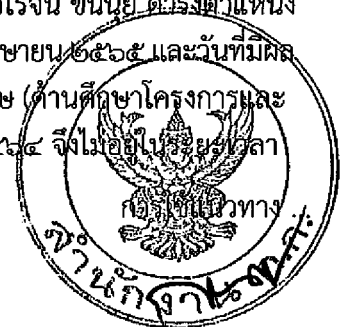 ขุนนุ้ย ดำรงตำแหน่ง
ษายน ๒๕๖๕ และวันที่มีผล
ษ (ด้านศึกษาโครงการและ
๕๖๔ จึงไม่อยู่ในระยะเวลา
การใช้แนวทาง
สำนักงาน ก.ก.